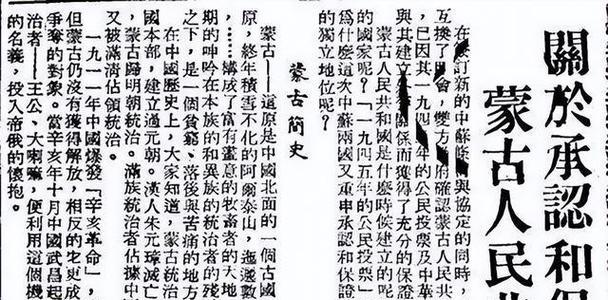 關於承認和保
蒙古人民共
在訂新的中蘇條與協定的同時，
互換了會，雙方府確認蒙古人民共
已因其一九四年的公民投票及中華
與其建立關係而獲得了充分的保證
蒙古人民共和國是什麼時候建立的呢
的國家呢？「一九四五年的公民投票」
爲什麼這次中蘇兩國又重申承認和保證
的獨立地位呢？
蒙古簡史
蒙古——這原是中國北面的一個古國
原，終年積雪不化的阿爾泰山，迤邐數
，……構成了富有畫意的牧畜者的大地
期的呻吟在本族的和異族的統治者的殘
之下，是一個貧窮、落後與苦痛的地方
在中國歷史上，大家知道，蒙古統治
國本部，建立過元朝。漢人朱元璋滅亡
，蒙古歸明朝統治。滿族統治者佔據中
又被滿清佔領統治。
一九一一年中國爆發「辛亥革命」，
但蒙古仍沒有獲得解放，相反的它更成
爭奪的對象。當辛亥年十月中國武昌起
治者——王公、大喇嘛，便利用這個機
的名義，投入帝俄的懷抱。